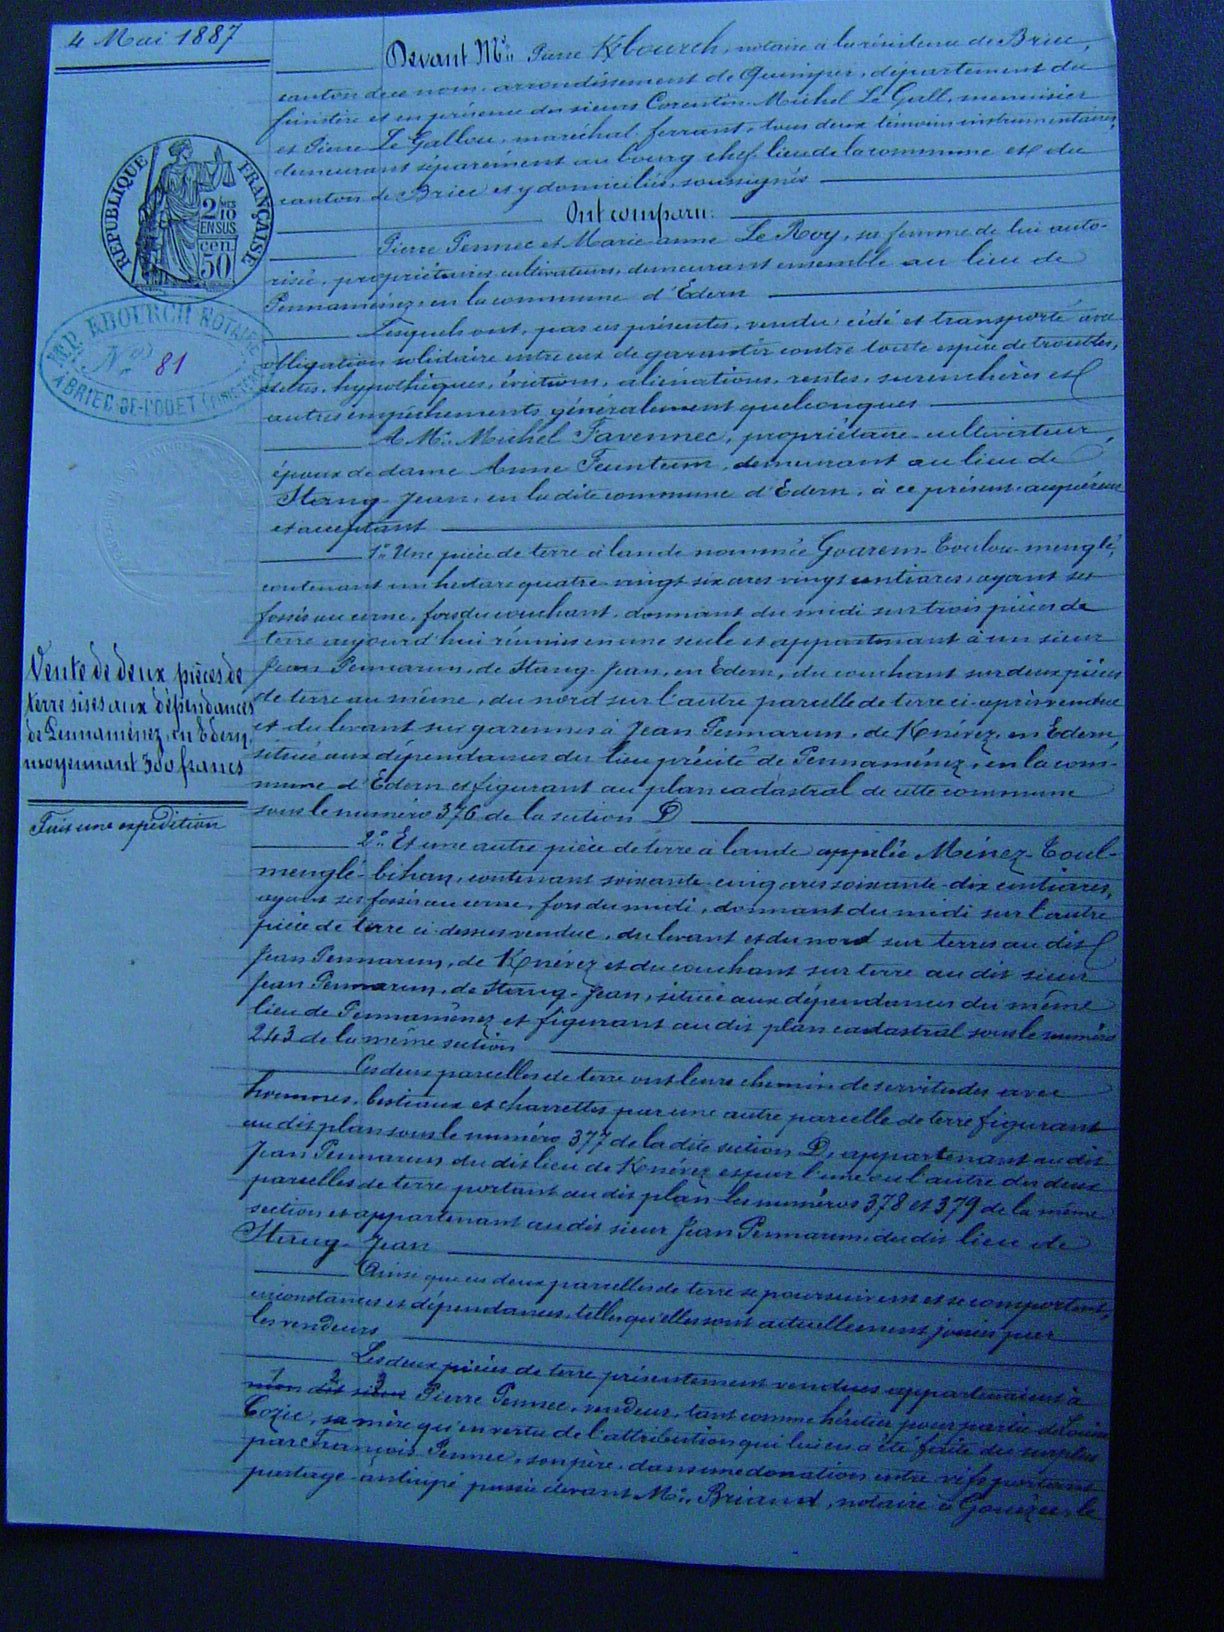 4 Mai 1887
Devant Me. Pierre Kbourch, notaire à la résidence de Briec,
canton de ce nom, arrondissement de Quimper, département du
finistère et en présence des sieurs Corentin-Michel Le Gall, menuisier
et Pierre Le Gallou, maréchal-ferrant, tous deux témoins instrumentaires,
demeurant séparément au bourg chef-lieu de la commune et du
canton de Briec et y domiciliés, soussignés
Ont comparu:
Pierre Pennec et Marie-anne Le Roy, sa femme de lui auto-
risée, propriétaires cultivateurs, demeurant ensemble au lieu de
Pennaménez, en la commune d'Edern
Lesquels ont, par ces présentes, vendu, cédé et transporté avec
obligation solidaire entre eux de garantir contre toute espèce de troubles,
dettes, hypothèques, évictions, aliénations, rentes, surenchères et
autres empêchements généralement quelconques
A Mr. Michel Favennec, propriétaire-cultivateur,
époux de dame Anne Feunteun, demeurant au lieu de
Stang-Jean, en la dite commune d'Edern, à ce présent, acquéreur
et acceptant
1° Une pièce de terre à lande nommée Gourem-Toulou-menglé,
contenant un hectare quatre-vingt six ares vingt centiares, ayant ses
fossés au cerne, fors du couchant, donnant du midi sur trois pièces de
terre aujourd'hui réunies en une seule et appartenant à un sieur
Jean Pennarun, de Stang-Jean, en Edern, du couchant sur deux pièces
de terre au même, du nord sur l'autre parcelle de terre ci-après vendue
et du levant sur garennes à Jean Pennarun, de Knévez, en Edern,
située aux dépendances du lieu précité de Pennaménez, en la com-
mune d'Edern et figurant au plan cadastral de cette commune
sous le numéro 376 de la section D
2° Et une autre pièce de terre à lande appelée Ménez-Toul-
menglé-bihan, contenant soixante-cinq ares soixante-dix centiares,
ayant ses fossés au cerne, fors du midi, donnant du midi sur l'autre
pièce de terre ci-dessus vendue, du levant et du nord sur terres au dit
Jean Pennarun, de Knévez et du couchant sur terre au dit sieur
Jean Pennarun, de Stang-Jean, située aux dépendances du même
lieu de Pennaménez et figurant au dit plan cadastral sous le numéro
243 de la même section
Ces deux parcelles de terre ont leurs chemin de servitudes avec
hommes, bestiaux et charrettes par une autre parcelle de terre figurant
au dit plan sous le numéro 377 de la dite section D, appartenant au dit
Jean Pennarun du dit lieu de Knévez et par l'une ou l'autre des deux
parcelles de terre portant au dit plan les numéros 378 et 379 de la même
section et appartenant au dit sieur Jean Pennarun, du dit lieu de
Stang-Jean
Ainsi que ces deux parcelles de terre se poursuivent et se comportent,
circonstances et dépendances, telles qu'elles sont actuellement jouies par
les vendeurs
Les deux pièces de terre présentement vendues appartenaient à
1 2 3
Pierre Pennec, vendeur, tant comme héritier pour partie de Louise
Cozic, sa mère qu'en vertu de l'attribution qui lui en a été faite du surplus
par François Pennec, son père, dans une donation entre vifs portant
partage-anticipé passée devant Me. Briand, notaire à Gouézec, le
REPUBLIQUE FRANÇAISE
2/10 MES
EN SUS
50 cen
ME P. KBOURCH NOTAIRE
No 81
A BRIEC-DE-L'ODET (FINISTÈRE)
Vente de deux pièces de
terre sises aux dépendances
de Pennaménez, en Edern,
moyennant 300 francs
Fais une expédition